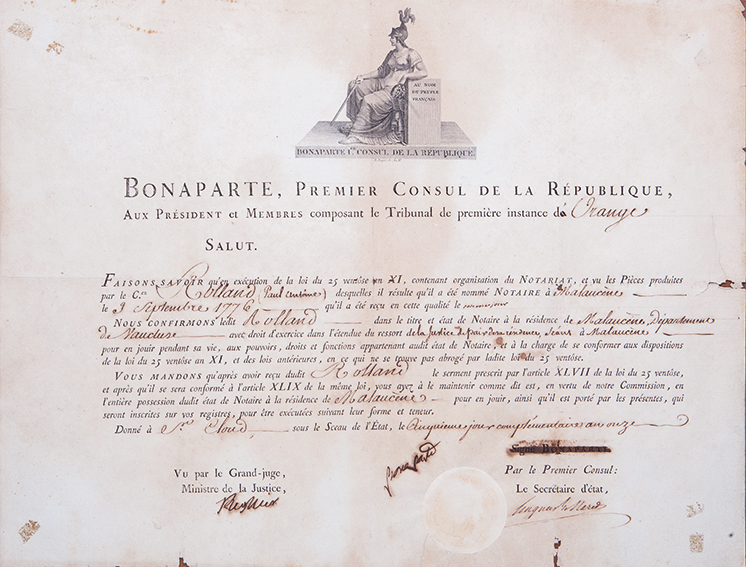 AU NOM
DU PEUPLE
FRANÇAIS
BONAPARTE 1.er CONSUL DE LA RÉPUBLIQUE.
BONAPARTE, PREMIER CONSUL DE LA RÉPUBLIQUE,
AUX PRÉSIDENT et MEMBRES composant le Tribunal de première instance d'Orange
SALUT.
FAISONS SAVOIR qu'en exécution de la loi du 25 ventôse an XI, contenant organisation du NOTARIAT, et vu les Pièces produites
par le C.en Rolland (Paul antoine) desquelles il résulte qu'il a été nommé NOTAIRE à Malaucène
le 3 Septembre 1776 qu'il a été reçu en cette qualité le
NOUS CONFIRMONS ledit Rolland dans le titre et état de Notaire à la résidence de Malaucène, Département
de Vaucluse avec droit d'exercice dans l'étendue du ressort de la Justice de paix de sa résidence, à Malaucène
pour en jouir pendant sa vie, aux pouvoirs, droits et fonctions appartenant audit état de Notaire, et à la charge de se conformer aux dispositions
de la loi du 25 ventôse an XI, et des lois antérieures, en ce qui ne se trouve pas abrogé par ladite loi du 25 ventôse.
VOUS MANDONS qu'après avoir reçu dudit Rolland le serment prescrit par l'article XLVII de la loi du 25 ventôse,
et après qu'il se sera conformé à l'article XLIX de la même loi, vous ayez à le maintenir comme dit est, en vertu de notre Commission, en
l'entière possession dudit état de Notaire à la résidence de Malaucène pour en jouir, ainsi qu'il est porté par les présentes, qui
seront inscrites sur vos registres, pour être exécutées suivant leur forme et teneur.
Donné à St Cloud sous le Sceau de l'État, le cinquième jour complémentaire an onze
Signé BONAPARTE
bonaparte
Vu par le Grand-juge, Par le Premier Consul:
Ministre de la Justice, Le Secrétaire d'état,
Regnier
hugues b. maret